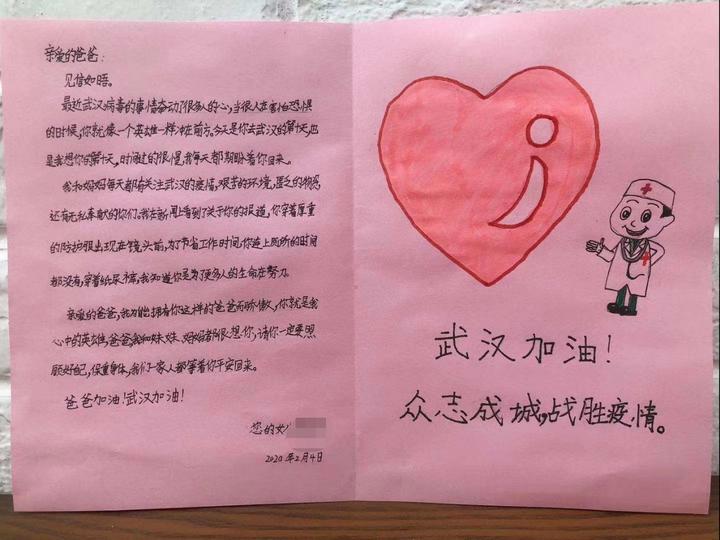 亲爱的爸爸:
见信如晤。
最近武汉病毒的事情奋动了很多人的心,当很人在害怕恐惧
的时候,你就像一个英雄一样冲在前方。今天是你去武汉的第十天,也
是我想你的第十天,时间过的很慢,我每天都期盼着你回来。
我和妈妈每天都有关注武汉的疫情,艰苦的环境,匮乏的物资
还有无私奉献的你们。我在新闻上看到了关于你的报道,你穿着厚重
的防护服出现在镜头前,为了节省工作时间,你连上厕所的时间
都没有,穿着纸尿裤,我知道你是为了更多人的生命在努力。
亲爱的爸爸,我为能拥有你这样的爸爸而骄傲,你就是我
心中的英雄,爸爸,我和妹妹、妈妈都很想你,请你一定要照
顾好自己,保重身体,我们一家人都等着你平安回来。
爸爸加油!武汉加油!
您的女
2020年2月4日
武汉加油!
众志成城,战胜疫情。